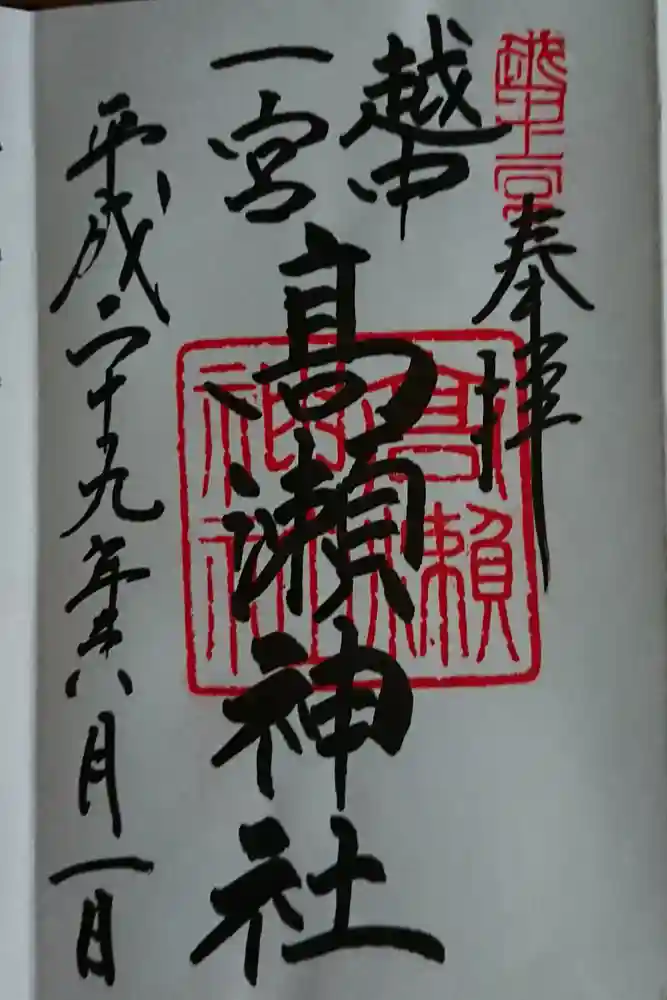 越中一宮
奉拝
越中
一宮
高瀬神社
高瀬
神社
平成二十九年六月一日